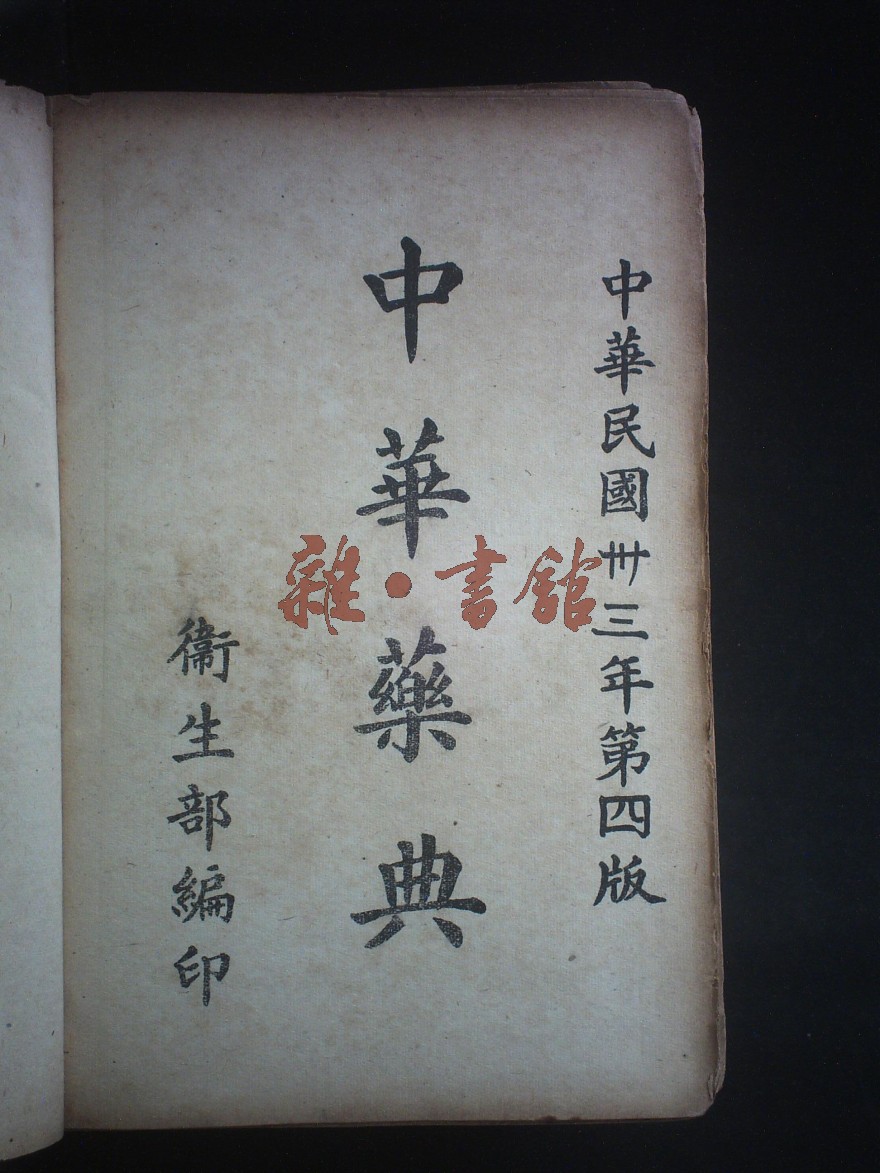 中華民國卅三年第四版
中華藥典
衞生部編印
雜·書館